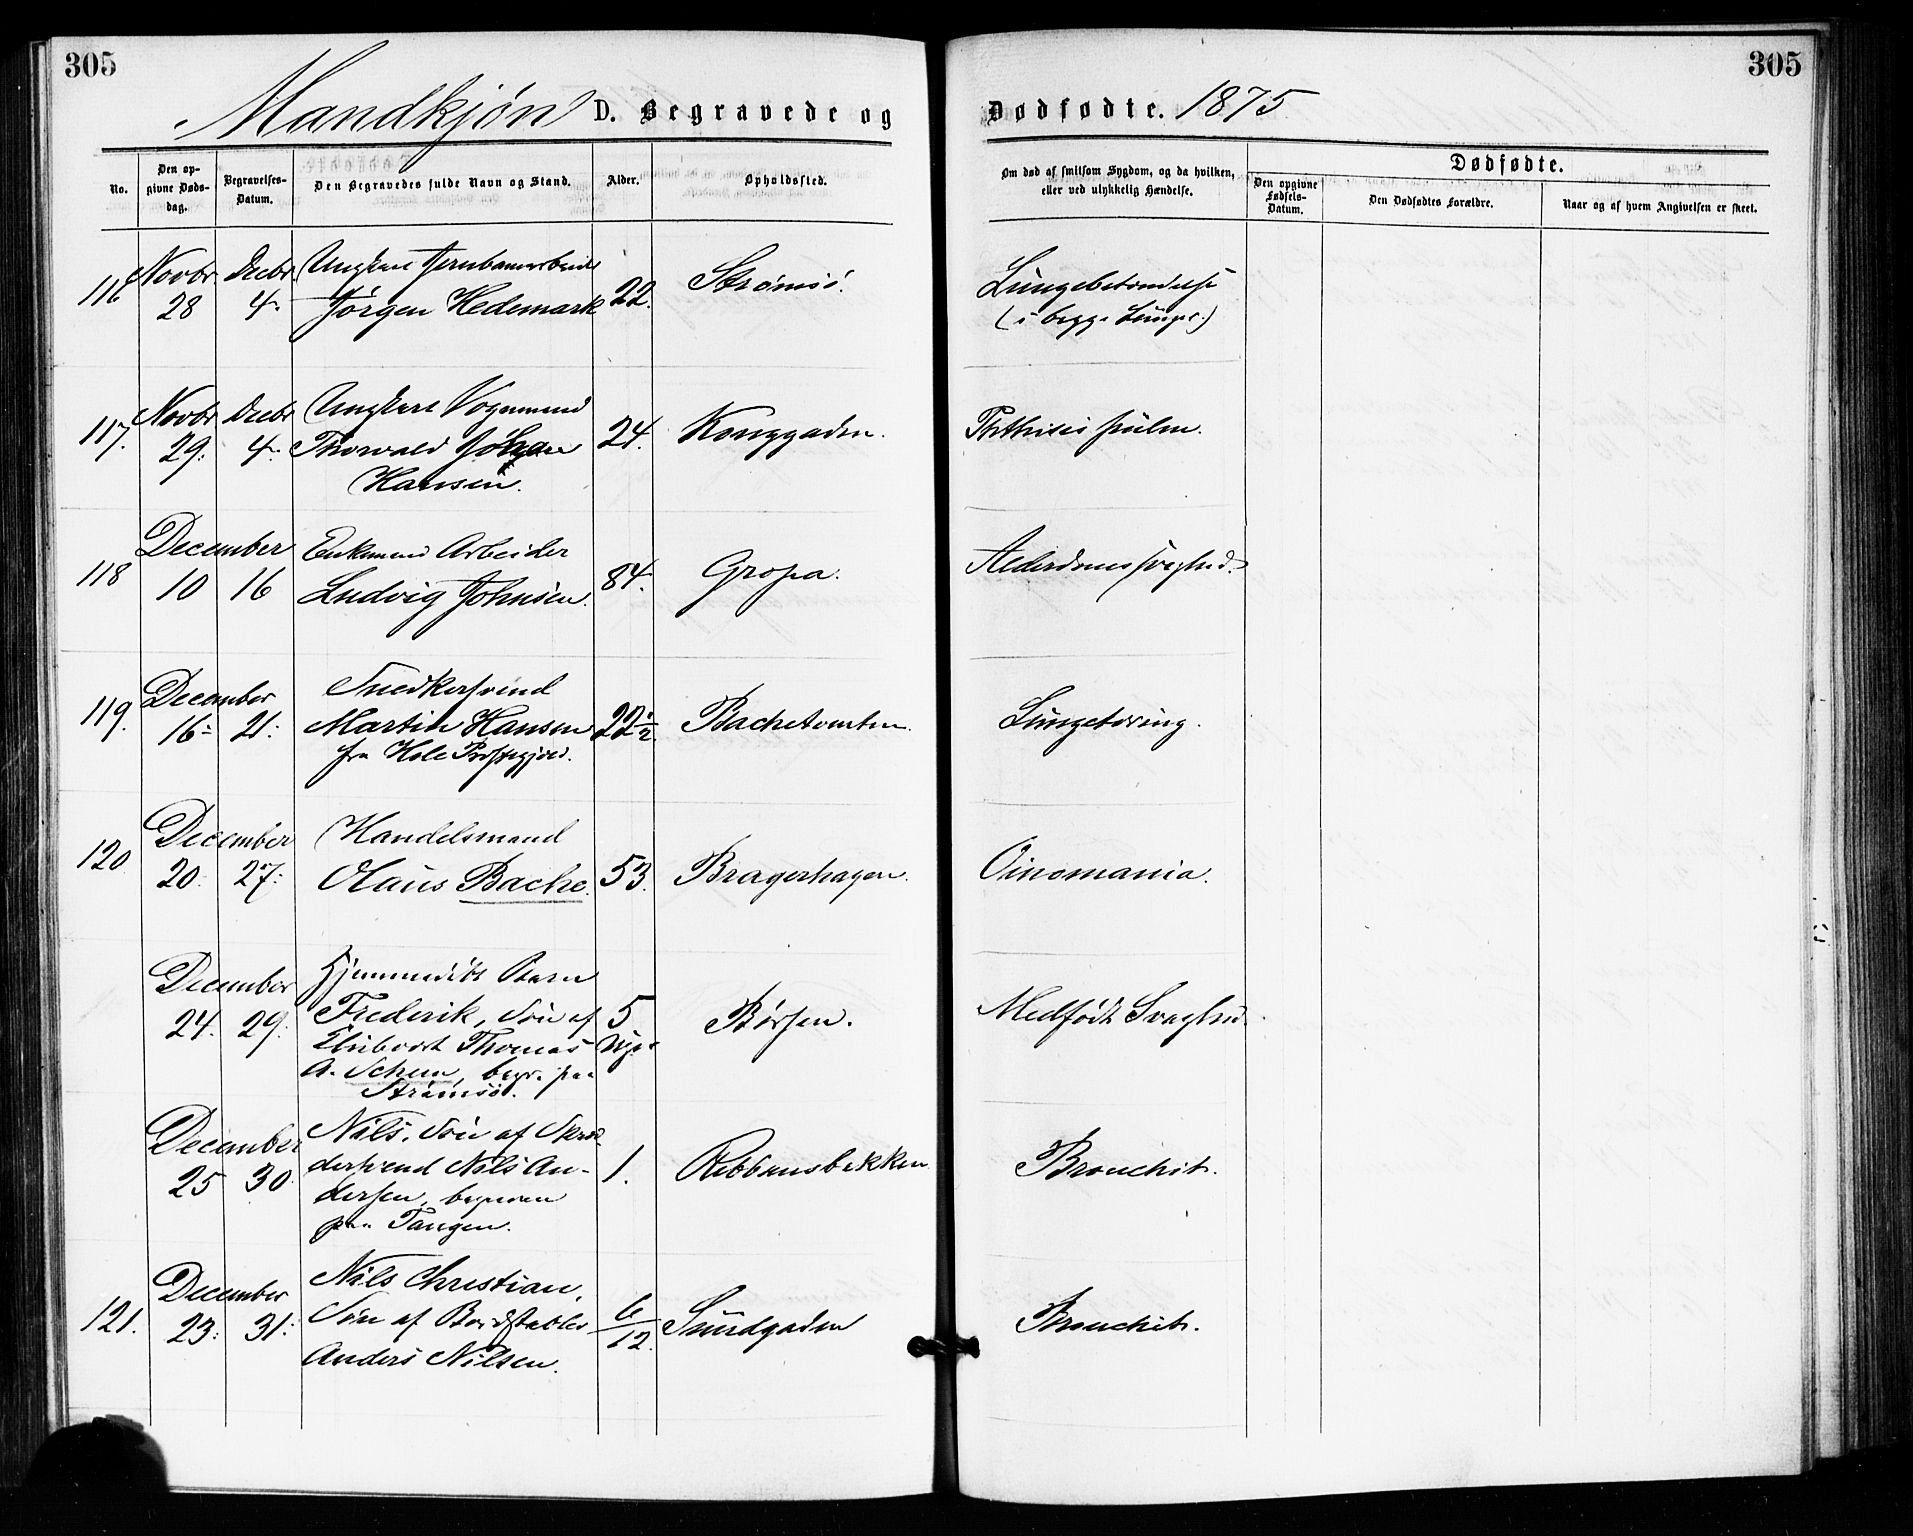 305
305
Mandkjøn D. Begravede og Dødfødte. 1875
No.
Den opgivne Døds-dag.
Begravelses-Datum.
Den Begravedes fulde Navn og Stand.
Alder.
Opholdssted.
Om død af smitsom Sygdom, og da hvilken,
eller ved ulykkelig Hændelse.
Dødfødte.
Den opgivne Fødsels-Datum.
Den Dødfødtes Forældre.
Naar og af hvem Angivelsen er skeet.
116 Novbr 28 Decbr 4. Ungkarl Jernbanearbeider
Jørgen Hedemark 22. Strømsø. Lungebetændelse
(i begge Lunger.)
117. Novbr 29. Decbr 4. Ungkarl Vognmand
Thorvald Johan
Hansen. 24. Konggaden. Phthisis pulm.
118 December 10 16 Enkemand Arbeider
Ludvig Johnsen. 84. Gropa. Alderdomssvaghed.
119. December 16. 21. Snedkersvend
Martin Hansen
fra Hole Præstegjeld. 22½. Bachetomten. Lungetæring.
120 December 20. 27. Handelsmand
Olaus Bache. 53. Bragerhagen. Oinomania.
December 24. 29. Hjemmedøbt Barn
Frederik, Søn af
Thomas
A. Schem, begr. paa
Strømsø. 5 Ug. Børsen. Medfødt Svaghed.
December 25 30 Nils, Søn af Skræ-
dersvend Nils An-
dersen, begraven
paa Tangen. 1. Ribbunsbækken Bronchit.
121. December 23. 31. Nils Christian,
Søn af Bordstabler
Anders Nilsen. 6/12. Sundgaden Bronchit.